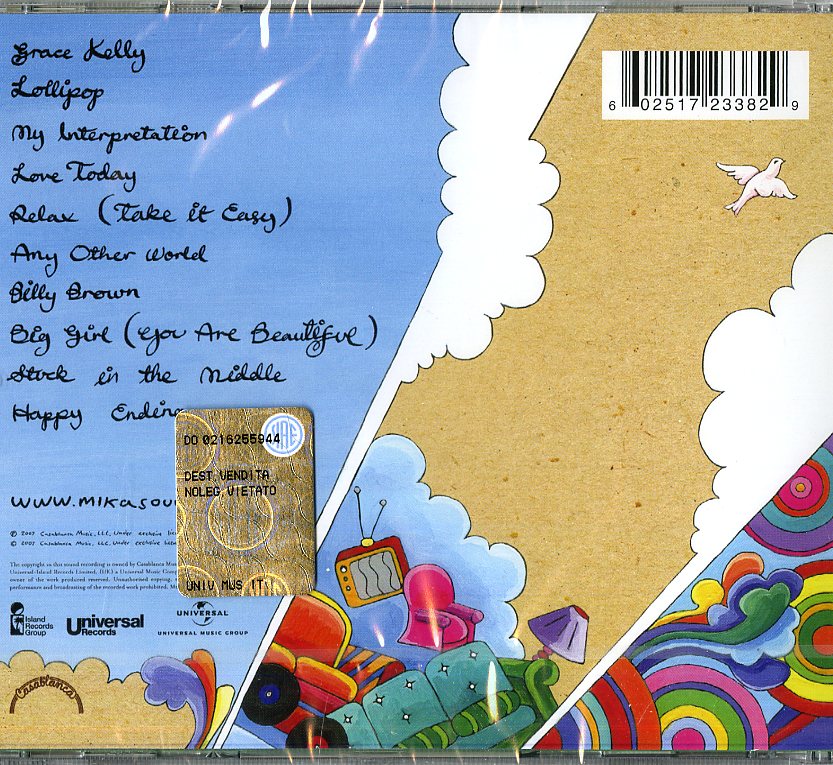 Grace Kelly
Lollipop
My Interpretation
Love Today
Relax (Take it Easy)
Any Other World
Billy Brown
Big Girl (You Are Beautiful)
Stuck in the Middle
Happy Ending
6 02517 23382 9
DO 0216255944
SIAE
DEST.VENDITA
NOLEG.VIETATO
UNIV MUS IT
WWW.MIKASOU
℗ 2007 Casablanca Music, LLC, Under exclusive
© 2007 Casablanca Music, LLC, Under exclusive
The copyright in this sound recording is owned by Casablanca
Universal-Island Records Limited, (UK) a Universal Music
owner of the work produced reserved. Unauthorised copying,
performance and broadcasting of the recorded work prohibited.
Island Records Group
Universal Records
UNIVERSAL
UNIVERSAL MUSIC GROUP
Casablanca